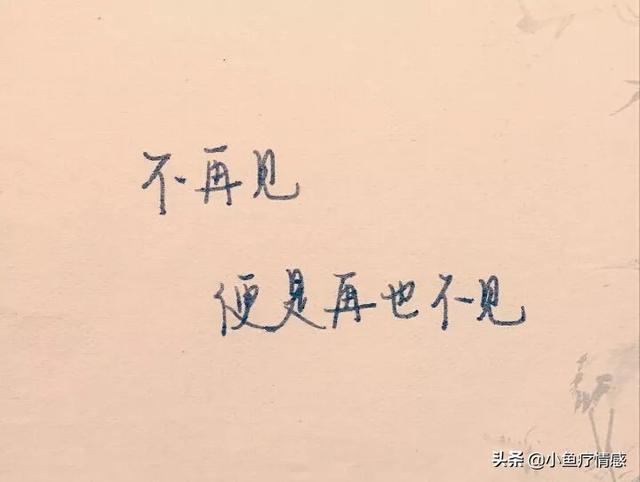 不再见
便是再也不见
头条 @小鱼疗情感